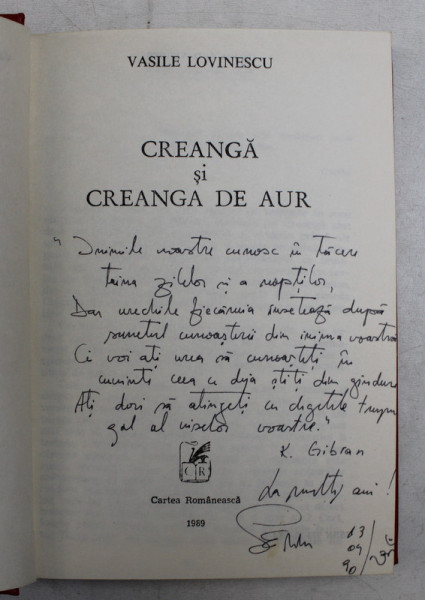 VASILE LOVINESCU
CREANGĂ
și
CREANGA DE AUR
"Inimile voastre cunosc în tăcere
taina zilelor și a nopților,
Dar urechile fiecăruia însetează după
sunetul cunoașterii din inima voastră
Ci voi ați vrea să cunoașteți în
cuvinte ceea ce deja știți din gânduri
Ați dori să atingeți cu degetele trupul
gol al viselor voastre."
K. Gibran
Cartea Românească
1989
La mulți ani!
13
04
90